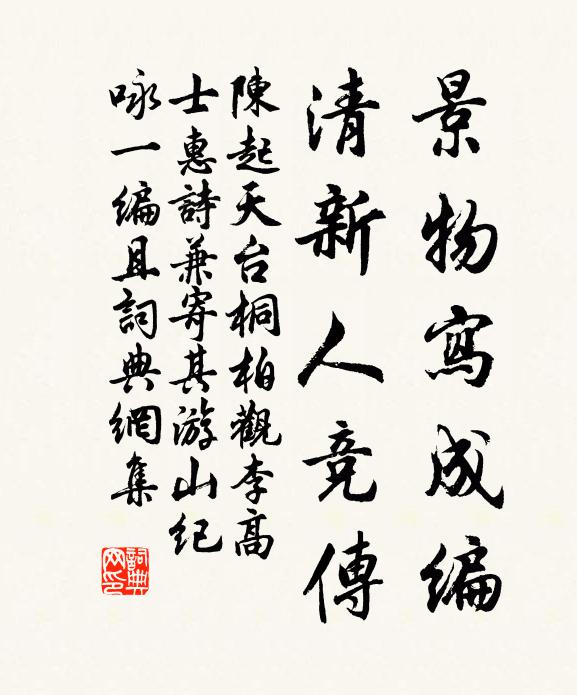 景物寫成編
清新人竞傳
陳起天台桐柏觀李高
士惠詩兼寄其游山纪
咏一编且詞典網集
詞典网印